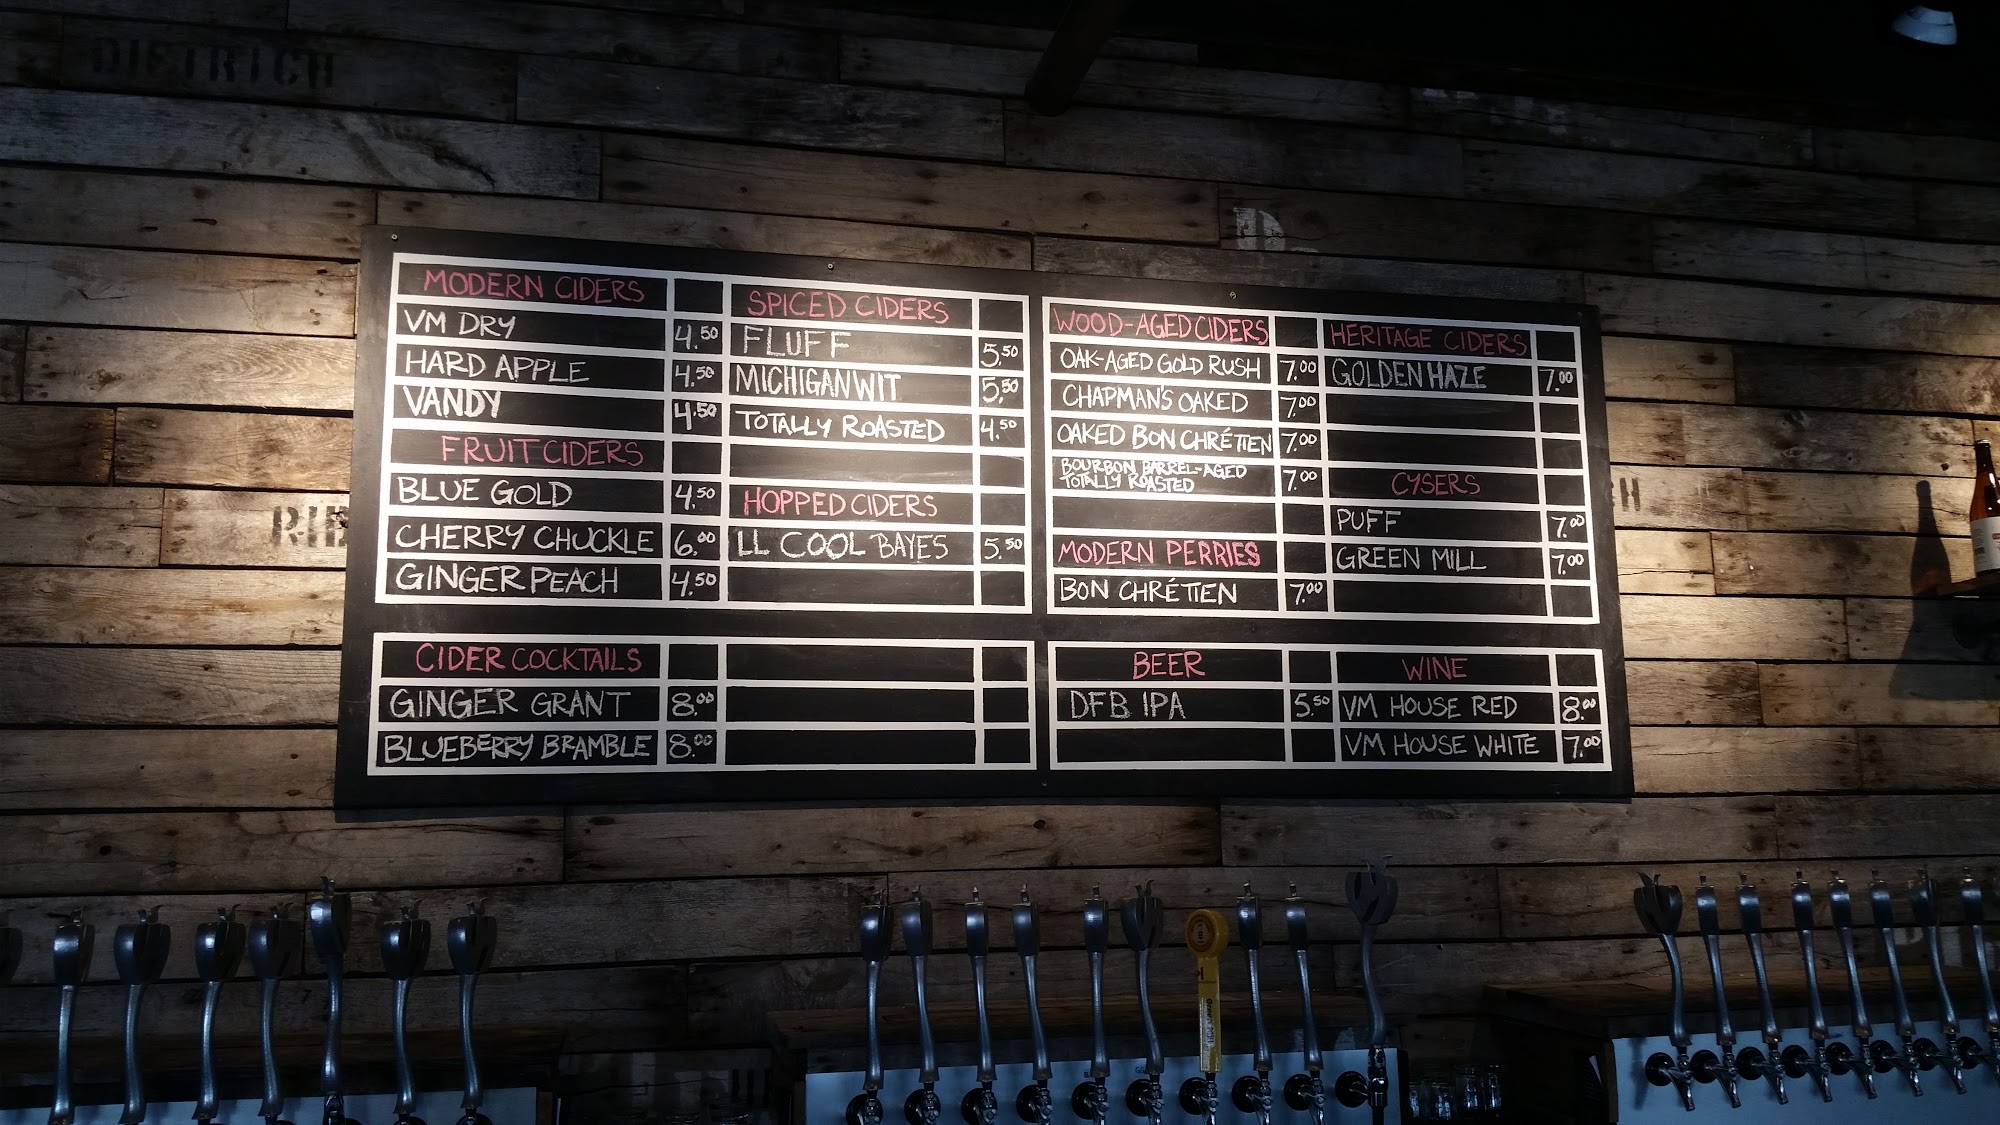 DIETRICH
MODERN CIDERS
VM DRY 4.50
HARD APPLE 4.50
VANDY 4.50
FRUIT CIDERS
BLUE GOLD 4.50
CHERRY CHUCKLE 6.00
GINGER PEACH 4.50
SPICED CIDERS
FLUFF 5.50
MICHIGAN WIT 5.50
TOTALLY ROASTED 4.50
HOPPED CIDERS
LL COOL BAYES 5.50
WOOD-AGED CIDERS
OAK-AGED GOLD RUSH 7.00
CHAPMAN'S OAKED 7.00
OAKED BON CHRÉTIEN 7.00
BOURBON BARREL-AGED
TOTALLY ROASTED 7.00
MODERN PERRIES
BON CHRÉTIEN 7.00
HERITAGE CIDERS
GOLDEN HAZE 7.00
CYSERS
PUFF 7.00
GREEN MILL 7.00
CIDER COCKTAILS
GINGER GRANT 8.00
BLUEBERRY BRAMBLE 8.00
BEER
DFB IPA 5.50
WINE
VM HOUSE RED 8.00
VM HOUSE WHITE 7.00